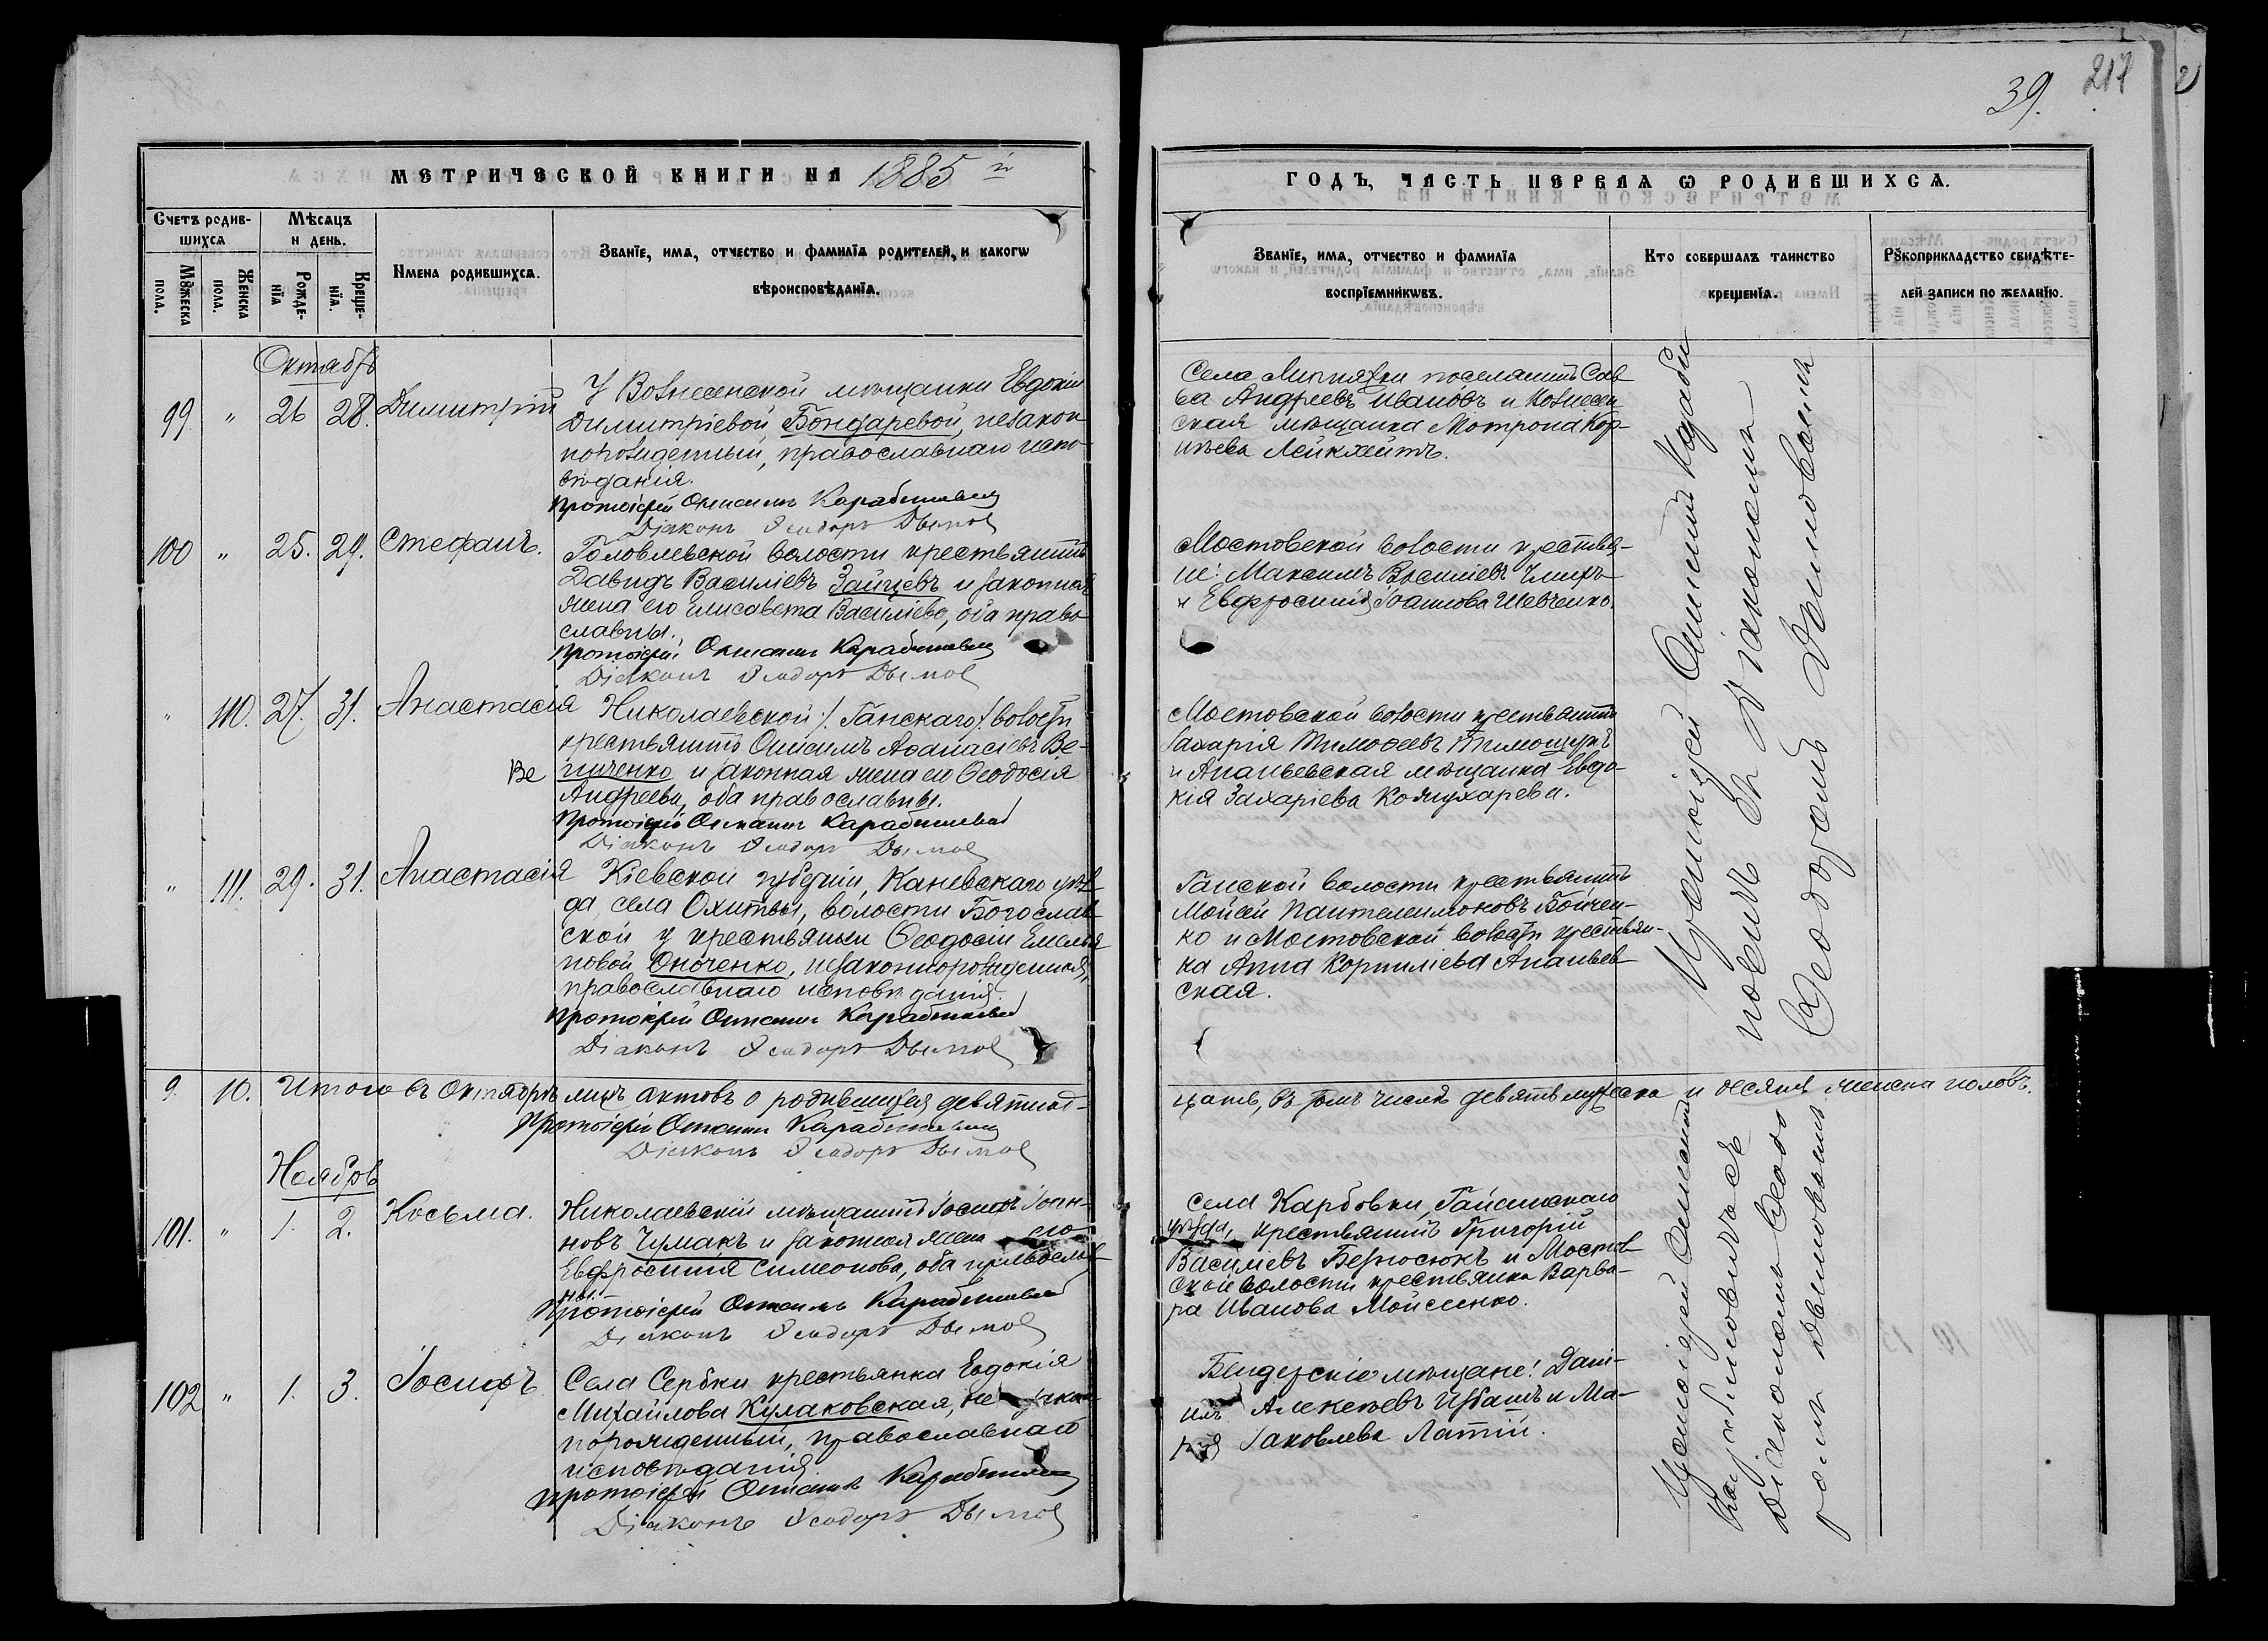 39. 217
МЕТРИЧЕСКОЙ КНИГИ НА 1885 й
ГОДЪ, ЧАСТЬ ПЕРВАЯ Ѡ РОДИВШИХСѦ.
Счетъ родив-
шихсѧ
Мѣсѧцъ
и день.
Мꙋжеска
пола.
Женска
пола.
Рожде-
нїѧ
Креще-
нїѧ.
Имена родившихсѧ.
Званїе, имѧ, отчество и фамилїѧ родителей, и какогѡ
вѣроисповѣданїѧ.
Званїе, имѧ, отчество и фамилїѧ
воспрїемникѡвъ.
Кто совершалъ таинство
крещенїѧ.
Рꙋкоприкладство свидѣте-
лей записи по желанїю.
Октябрь
99 " 26 28. Димитрій
У Вознесенской мѣщанки Евдокіи
Димитріевой Бондаревой, незакон
норожденный, православнаго испо-
вѣданія.
Протоіерей Онисимъ
Діаконъ Ѳеодоръ
Села Липняжки поселянинъ Сав
ва Андреевъ Ивановъ и Вознесен
ская мѣщанка Мотрона Кор-
нѣева
100 " 25. 29. Стефанъ.
Головлевской волости крестьянинъ
Давидъ Василіевъ Зайцевъ и законная
жена его Елисавета Василіева, оба право
славны.
Протоіерей Онисимъ
Діаконъ Ѳеодоръ
Мостовской волости крестья-
не: Максимъ Василіевъ
и Евфросинія Іоаннова Шевченко.
" 110. 27. 31. Анастасія
Николаевской /: Ганскаго :/ волости
крестьянинъ Онисимъ Аѳанасіевъ Ве-
Ве личенко и законная жена его Ѳеодосія
Андреева, оба православны.
Протоіерей Онисимъ
Діаконъ Ѳеодоръ
Мостовской волости крестьянинъ
Захарія Тимоѳеевъ Тимощукъ
и Ананьевская мѣщанка Евдо-
кія Захаріева Кожухарева.
" 111. 29. 31. Анастасія
Кіевской губерніи, Каневскаго уѣз
да, села Охитвы, волости Богослав
ской у крестьянки Ѳеодосіи Емелья
новой Оноченко, незаконнорожденная,
православнаго исповѣданія.
Протоіерей Онисимъ
Діаконъ Ѳеодоръ
Ганской волости крестьянинъ
Мойсей Пантелеимоновъ Бойчен-
ко и Мостовской волости крестьян-
ка Анна Корниліева Ананьев
ская.
Протоіерей Онисимъ
съ Діакономъ
Ѳеодоромъ
9. 10. Итого въ Октябрѣ мцѣ актовъ о родившихся девятнад-
цать, въ томъ числѣ девять мужеска и десять женска половъ.
Протоіерей Онисимъ
Діаконъ Ѳеодоръ
Ноябрь
101. " 1. 2. Косьма.
Николаевскій мѣщанинъ Іосифъ Іоан-
новъ Чумакъ и законная жена его
Евфросинія Симеонова, оба православ
ны.
Протоіерей Онисимъ
Діаконъ Ѳеодоръ
Села Карбовки, Гайсинскаго
уѣзда, крестьянинъ Григорій
Василіевъ и Мостов
ской волости крестьянка Варва-
ра Иванова Мойсеенко.
102 " 1. 3. Іосифъ
Села Сербки крестьянка Евдокія
Михайлова Кулаковская, незакон
норожденный, православнаго
исповѣданія.
Протоіерей Онисимъ
Діаконъ Ѳеодоръ
Бендерскіе мѣщане: Дані-
илъ Алексѣевъ и Ма-
рія Іаковлева Латій.
Протоіерей Онисимъ
съ
Діакономъ Ѳеодо
ромъ